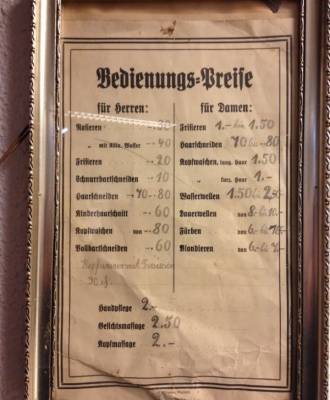 Bedienungs-Preise
für Herren:
Rasieren 30
" mit Köln. Wasser 40
Frisieren 20
Schnurrbartschneiden 10
Haarschneiden 70-80
Kinderhaarschnitt 60
Kopfwaschen von 80
Vollbartschneiden 60
30 Pf.
für Damen:
Frisieren 1.- bis 1.50
Haarschneiden 70 bis 80
Kopfwaschen, lang. Haar 1.50
" kurz. Haar 1.-
Wasserwellen 1.50 bis 2.50
Dauerwellen von 8.- b. 10.-
Färben von 6.- b.
Blondieren von 6.- b.
Handpflege 2.-
Gesichtsmassage 2.50
Kopfmassage 2.-